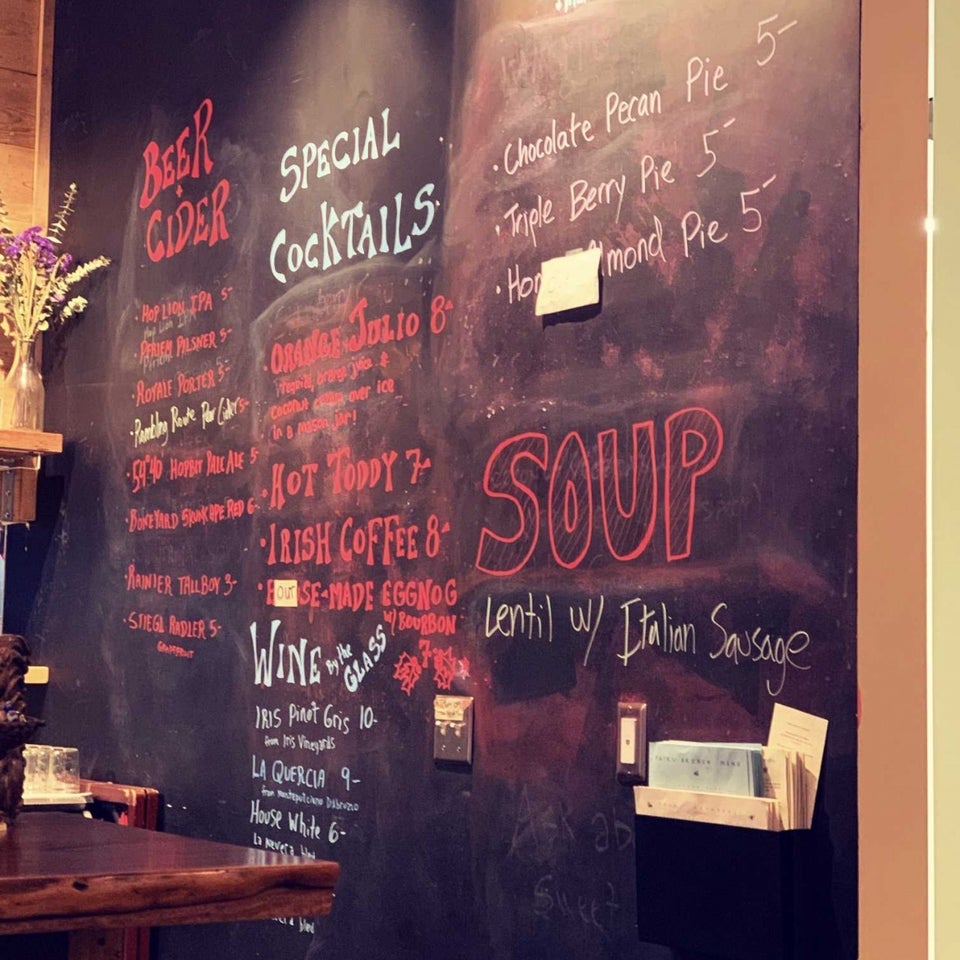 BEER
+
CIDER
• HOP LION IPA 5-
• PFRIEM PILSNER 5-
• ROYALE PORTER 5-
• Rambling Route Pear Cider 5-
• 54°40' HOPBIT PALE ALE 5-
• BONEYARD SKUNK APE RED 6-
• RAINIER TALLBOY 3-
• STIEGL RADLER 5-
GRAPEFRUIT
SPECIAL
COCKTAILS
• ORANGE JULIO 8-
tequila, orange juice &
coconut cream over ice
in a mason jar!
• HOT TODDY 7-
• IRISH COFFEE 8-
OUT
SE-MADE EGGNOG
W/ BOURBON
7-
WINE By the GLASS
IRIS Pinot Gris 10-
from Iris Vineyards
LA QUERCIA 9-
from Montepulciano D'Abruzzo
HOUSE White 6-
La Nevera blnd
• Chocolate Pecan Pie 5-
• Triple Berry Pie 5-
• Hon lmond Pie 5-
SOUP
Lentil w/ Italian Sausage
Ask ab
Sweet